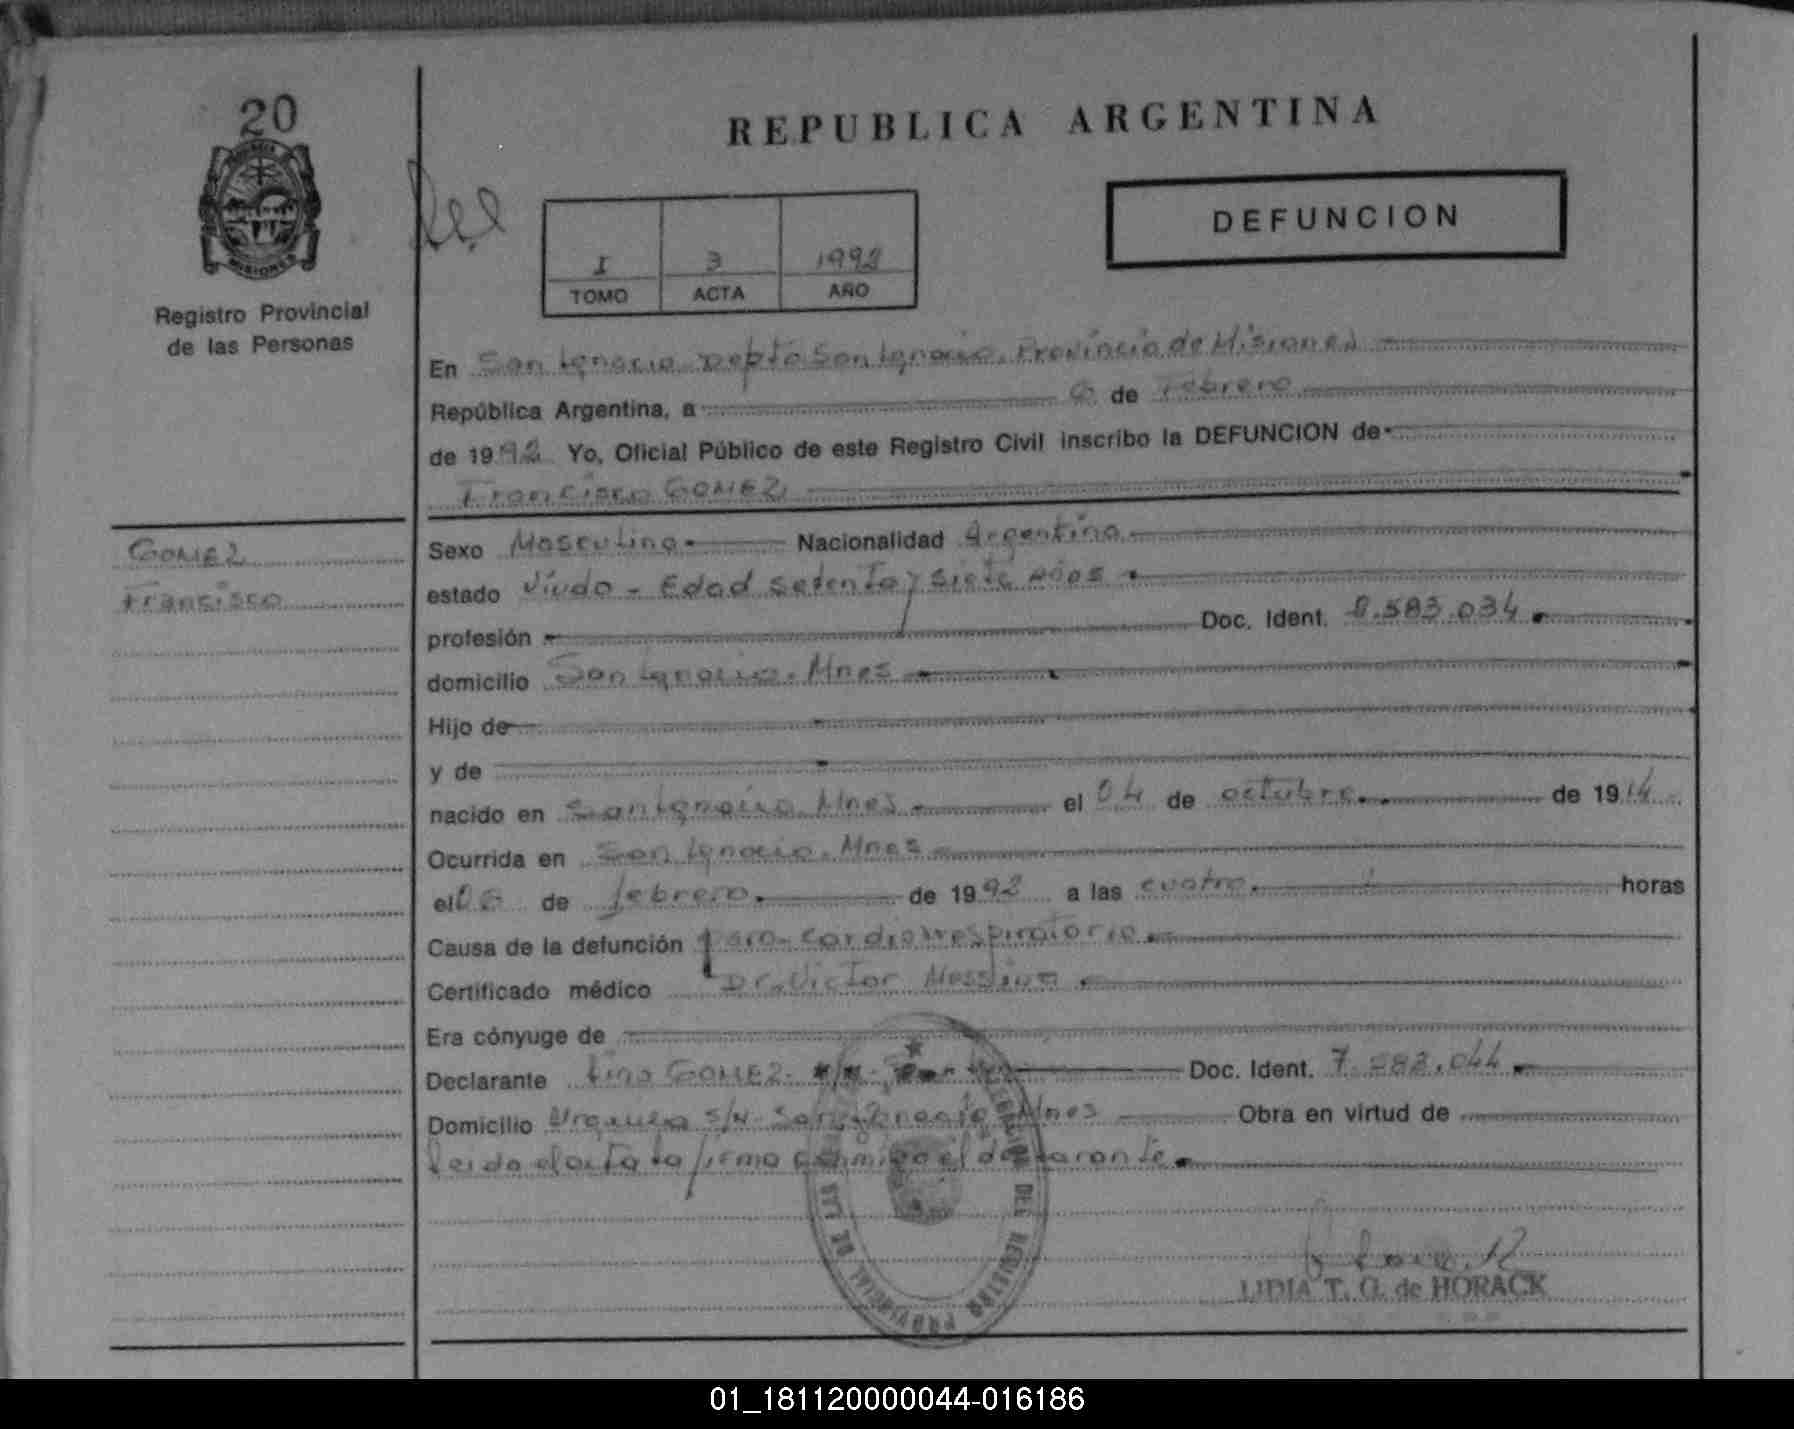 20
MISIONES
Registro Provincial
de las Personas
REPUBLICA ARGENTINA
DEFUNCION
I 3 1992
TOMO ACTA AÑO
En San Ignacio Depto San Ignacio. Provincia de Misiones
República Argentina, a 6 de Febrero
de 1992 Yo, Oficial Público de este Registro Civil inscribo la DEFUNCION de
Francisco GOMEZ
GOMEZ
Francisco
Sexo Masculino Nacionalidad Argentina
estado Viudo - Edad setenta y siete años
profesión Doc. Ident. 8.583.034
domicilio San Ignacio. Mnes
Hijo de
y de
nacido en San Ignacio. Mnes el 04 de octubre de 1914
Ocurrida en San Ignacio. Mnes
el de febrero de 1992 a las cuatro horas
Causa de la defunción paro-cardiorrespiratorio
Certificado médico Dr. Victor Messina
Era cónyuge de
Declarante Lino GOMEZ Doc. Ident. 7.583.044
Domicilio Urquiza s/n San Ignacio Mnes Obra en virtud de
leida el acta la firma conmigo el declarante
REGISTRO PROVINCIAL DE LAS
LIDIA T. G. de HORACK
01_181120000044-016186